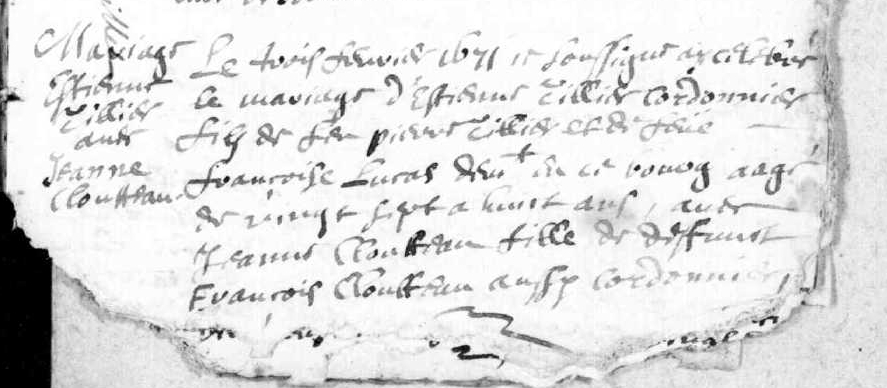 Mariage
Estienne
Tillier
avec
Jeanne
Cloutteau
Le trois febvrier 1671 ie soussigné ay celebré
le mariage d'Estienne Tillier Cordonnier
filz de feu pierre Tillier et de feüe
françoise Lucas demt en ce bourg aagé
de vingt sept a huit ans, avec
Jeanne Cloutteau fille de deffunct
François Cloutteau aussy cordonnier